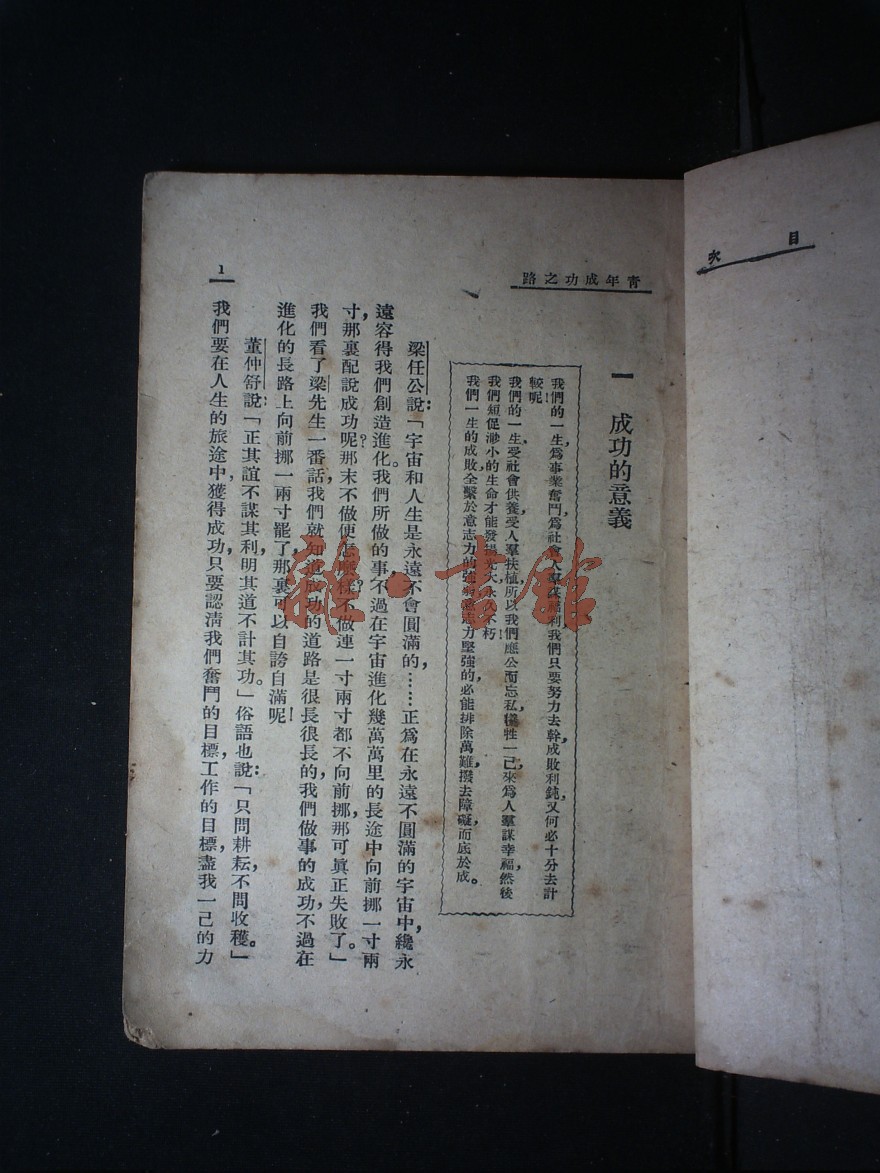 目次
青年成功之路
一　成功的意義
我們的一生，爲事業奮鬥，爲社會人羣謀福利，我們只要努力去幹，成敗利鈍，又何必十分去計
較呢！
我們的一生，受社會供養，受人羣扶植，所以我們應公而忘私，犧牲一己，來爲人羣謀幸福，然後
我們短促渺小的生命，才能發揚光大，永久不朽！
我們一生的成敗，全繫於意志力的強弱，意志力堅強的，必能排除萬難，撥去障礙，而底於成。
梁任公說：「宇宙和人生是永遠不會圓滿的，……正爲在永遠不圓滿的宇宙中，纔永
遠容得我們創造進化。我們所做的事，不過在宇宙進化幾萬萬里的長途中，向前挪一寸兩
寸，那裏配說成功呢？那末不做便怎麽樣？不做連一寸兩寸都不向前挪，那可眞正失敗了。」
我們看了梁先生一番話，我們就知道成功的道路是很長很長的，我們做事的成功，不過在
進化的長路上向前挪一兩寸罷了，那裏可以自誇自滿呢！
董仲舒說：「正其誼不謀其利，明其道不計其功。」俗語也說：「只問耕耘，不問收穫。」
我們要在人生的旅途中，獲得成功，只要認淸我們奮鬥的目標，工作的目標，盡我一己的力
1
雜·書館